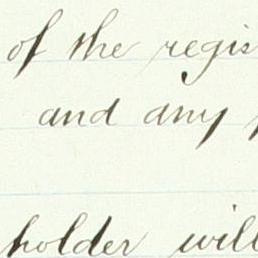 of the regis
and any
holder will